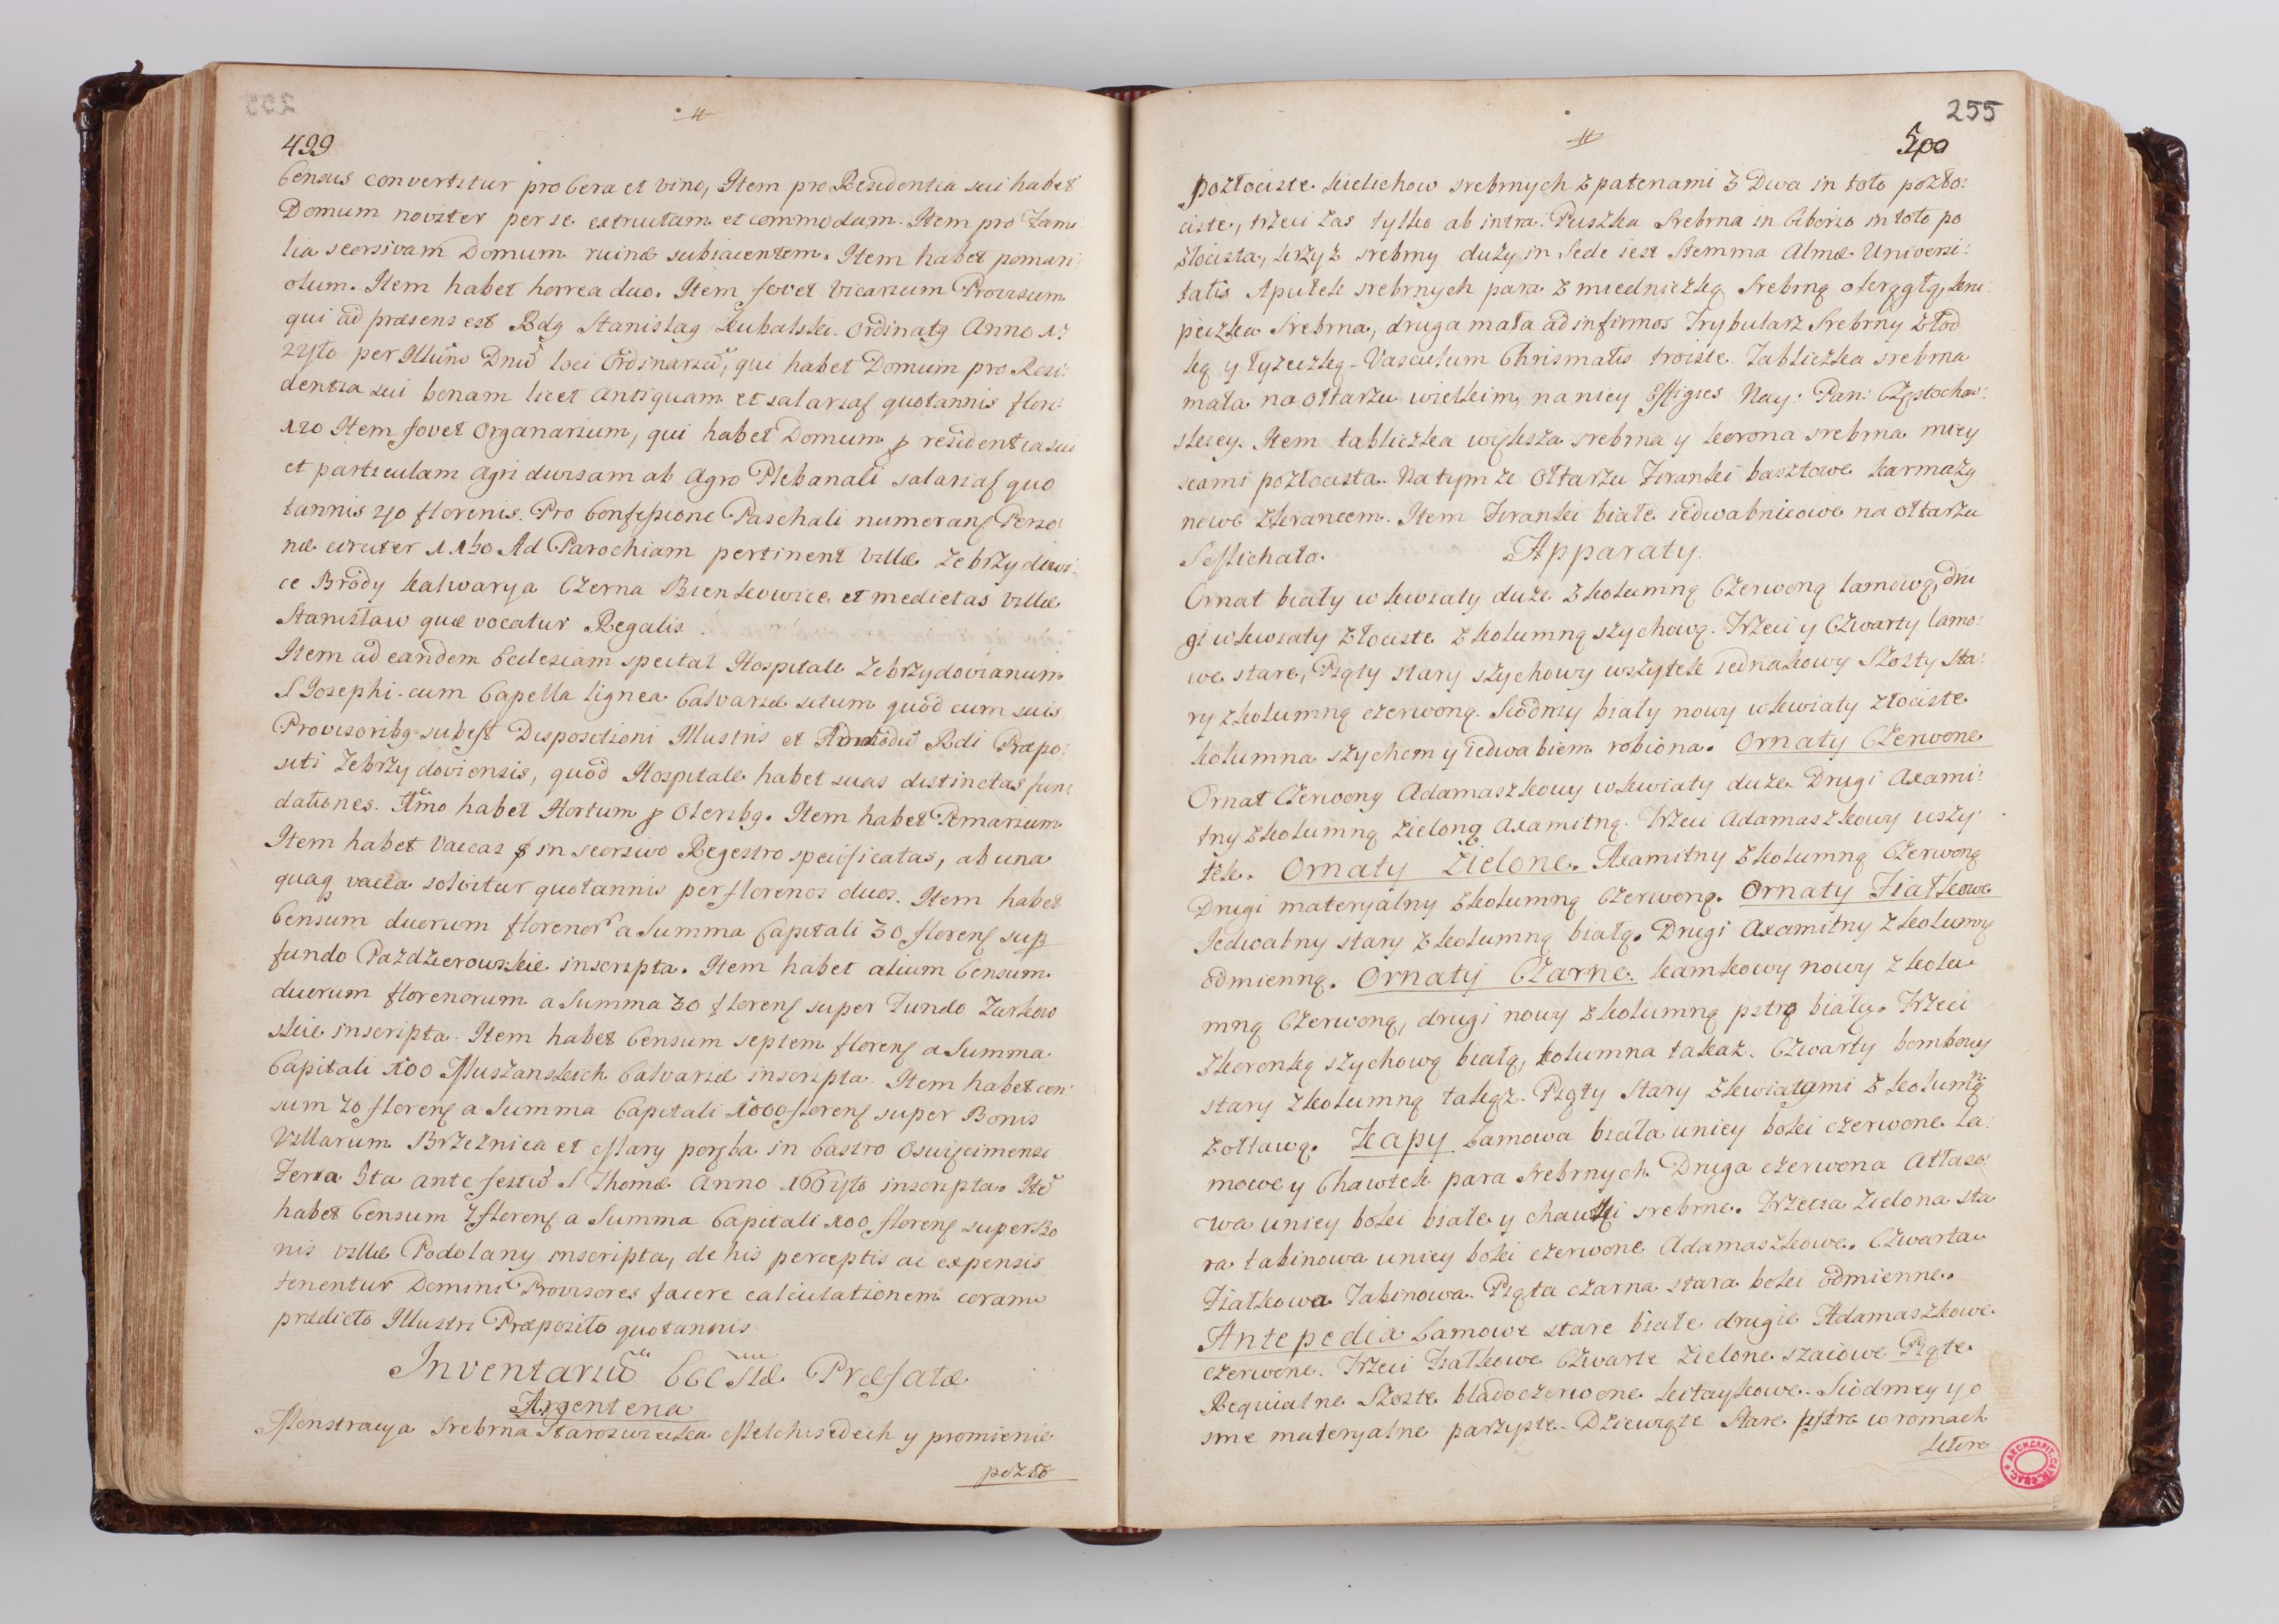 499
Census convertitur pro Cera et vino, Item pro Residentia sui habet
Domum noviter per se extructam et commodam. Item pro Fami
lia seorsivam Domum ruinæ subiacentem. Item habet pomari
olum. Item habet horrea duo. Item fovet Vicarium Provisum
qui ad præsens est Rdg Stanislag Kubalski. Ordinatg Anno 17
24to per Illumo Dnū loci Ordinariū, qui habet Domum pro Resi:
dentia sui bonam licet Antiquam et salariaſ quotannis flor:
120 Item fovet Organarium, qui habet Domum p residentia sui
et particulam agri divisam ab Agro Plebanali salariaſ quo
tannis 40 florenis. Pro Confessione Paschali numeranſ Perso:
næ circiter 1150 Ad Parochiam pertinent villæ Zebrzydowi:
ce Brody Kalwarya Czerna Bienkowice et medietas villæ
Stanisław quæ vocatur Regalis.
Item ad eandem Ecclesiam spectat Hospitale Zebrzydovianum
S Josephi cum Capella lignea Calvariæ situm quod cum suis
Provisoribg subest Dispositioni Illustris et Admodū Rdi Præpo:
siti Zebrzydoviensis, quod Hospitale habet suas distinctas fun:
dationes. Imo habet Hortum p Oleribg. Item habet Pomarium
Item habet Vaccas 8 in seorsivo Regestro specificatas, ab una
quaq vacca solvitur quotannis per florenos duos. Item habet
Censum duorum florenor a Summa Capitali 30 florenſ sup
fundo Pazdzierowskie inscripta. Item habet alium Censum
duorum florenorum a Summa 30 florenſ super Fundo Zurkow
skie inscripta. Item habet Censum septem florenſ a Summa
Capitali 100 Muszanskich Calvariæ inscripta. Item habet cen:
sum 70 florenſ a Summa Capitali 1000 florenſ super Bonis
Villarum Brzeznica et Mary poręba in Castro Osuięcimensi
Feria 3ta ante festū S Thomæ Anno 1664to inscripta. Itē
habet Censum 7 florenſ a Summa Capitali 100 florenſ super Bo
nis villæ Podolany inscripta, de his perceptis ac expensis
tenentur Domini Provisores facere calculationem coram
prædicto Illustri Præposito quotannis
Inventariū Ecclīæ Præfatæ
Argenteria
Monstracya Srebrna Staroswiecka Melchisedech y promienie
pozło
255
500
pozłociste. kielichow srebrnych z patenami 3 Dwa in toto pozło:
ciste, trzeci zas tylko ab intra. Puszka Srebrna in Ciborio in toto po
złocista, krzyz srebrny duży in Pede iest Stemma Almæ Universi:
tatis Apułek srebrnych para z miedniczką Srebrną okrągłą, kru:
peczka Srebrna, druga mała ad infirmos Trybularz Srebrny złod
ką y łyzeczką - Vasculum Chrismatis troiste. Tabliczka srebrna
mała na ołtarzu wielkim, na niey Effigies Nay: Pan: Częstochow:
skiey. Item tabliczka większa srebrna y korona srebrna miey
scami pozłocista. Na tym ze Ołtarzu Firanki basztowe karmazy
nowe z francem. Item Firanki białe iedwabnicowe na ołtarzu
S Michała.
Apparaty.
Ornat biały w kwiaty duże z kolumną Czerwoną lamową, dru
gi w kwiaty złociste z kolumną szychową. Trzeci y Czwarty lamo:
we stare, Piąty stary szychowy wszytek iednakowy Szosty sta:
ry z kolumną czerwoną. Siodmy biały nowy w kwiaty złociste
kolumna szychem y iedwabiem robiona. Ornaty Czerwone
Ornat Czerwony Adamaszkowy w kwiaty duże. Drugi Axami:
tny z kolumną zieloną axamitną. Trzeci Adamaszkowy wszy
tek. Ornaty Zielone. Axamitny z kolumną Czerwoną
Drugi materyalny z kolumną Czerwoną. Ornaty Fiałkowe
Jedwabny stary z kolumną białą. Drugi Axamitny z kolumną
odmienną. Ornaty Czarne. kamkowy nowy z kolu
mną Czerwoną, drugi nowy z kolumną pstrą białą. Trzeci
z koronką szychową białą, kolumna takaz. Czwarty bombowy
stary z kolumną takąz. Piąty Stary z kwiatami z kolumną
żołtawą. Kapy Lamowa biała u niey boki czerwone La:
mowe y Chawtek para Srebrnych. Druga czerwona Atłaso:
wa u niey boki białe y chawtki srebrne. Trzecia Zielona sta
ra tabinowa u niey boki czerwone Adamaszkowe. Czwarta
Fiałkowa Tabinowa. Piąta czarna stara boki odmienne.
Antepedia Lamowe stare białe drugie Adamaszkowe
czerwone. Trzeci Fiałkowe Czwarte Zielone szaiowe Piąte
Requialne Szoste bladoczerwone kitaykowe. Siodmey y o
sme materyalne parzyste. Dziewiąte Stare pstre w romach
ktore